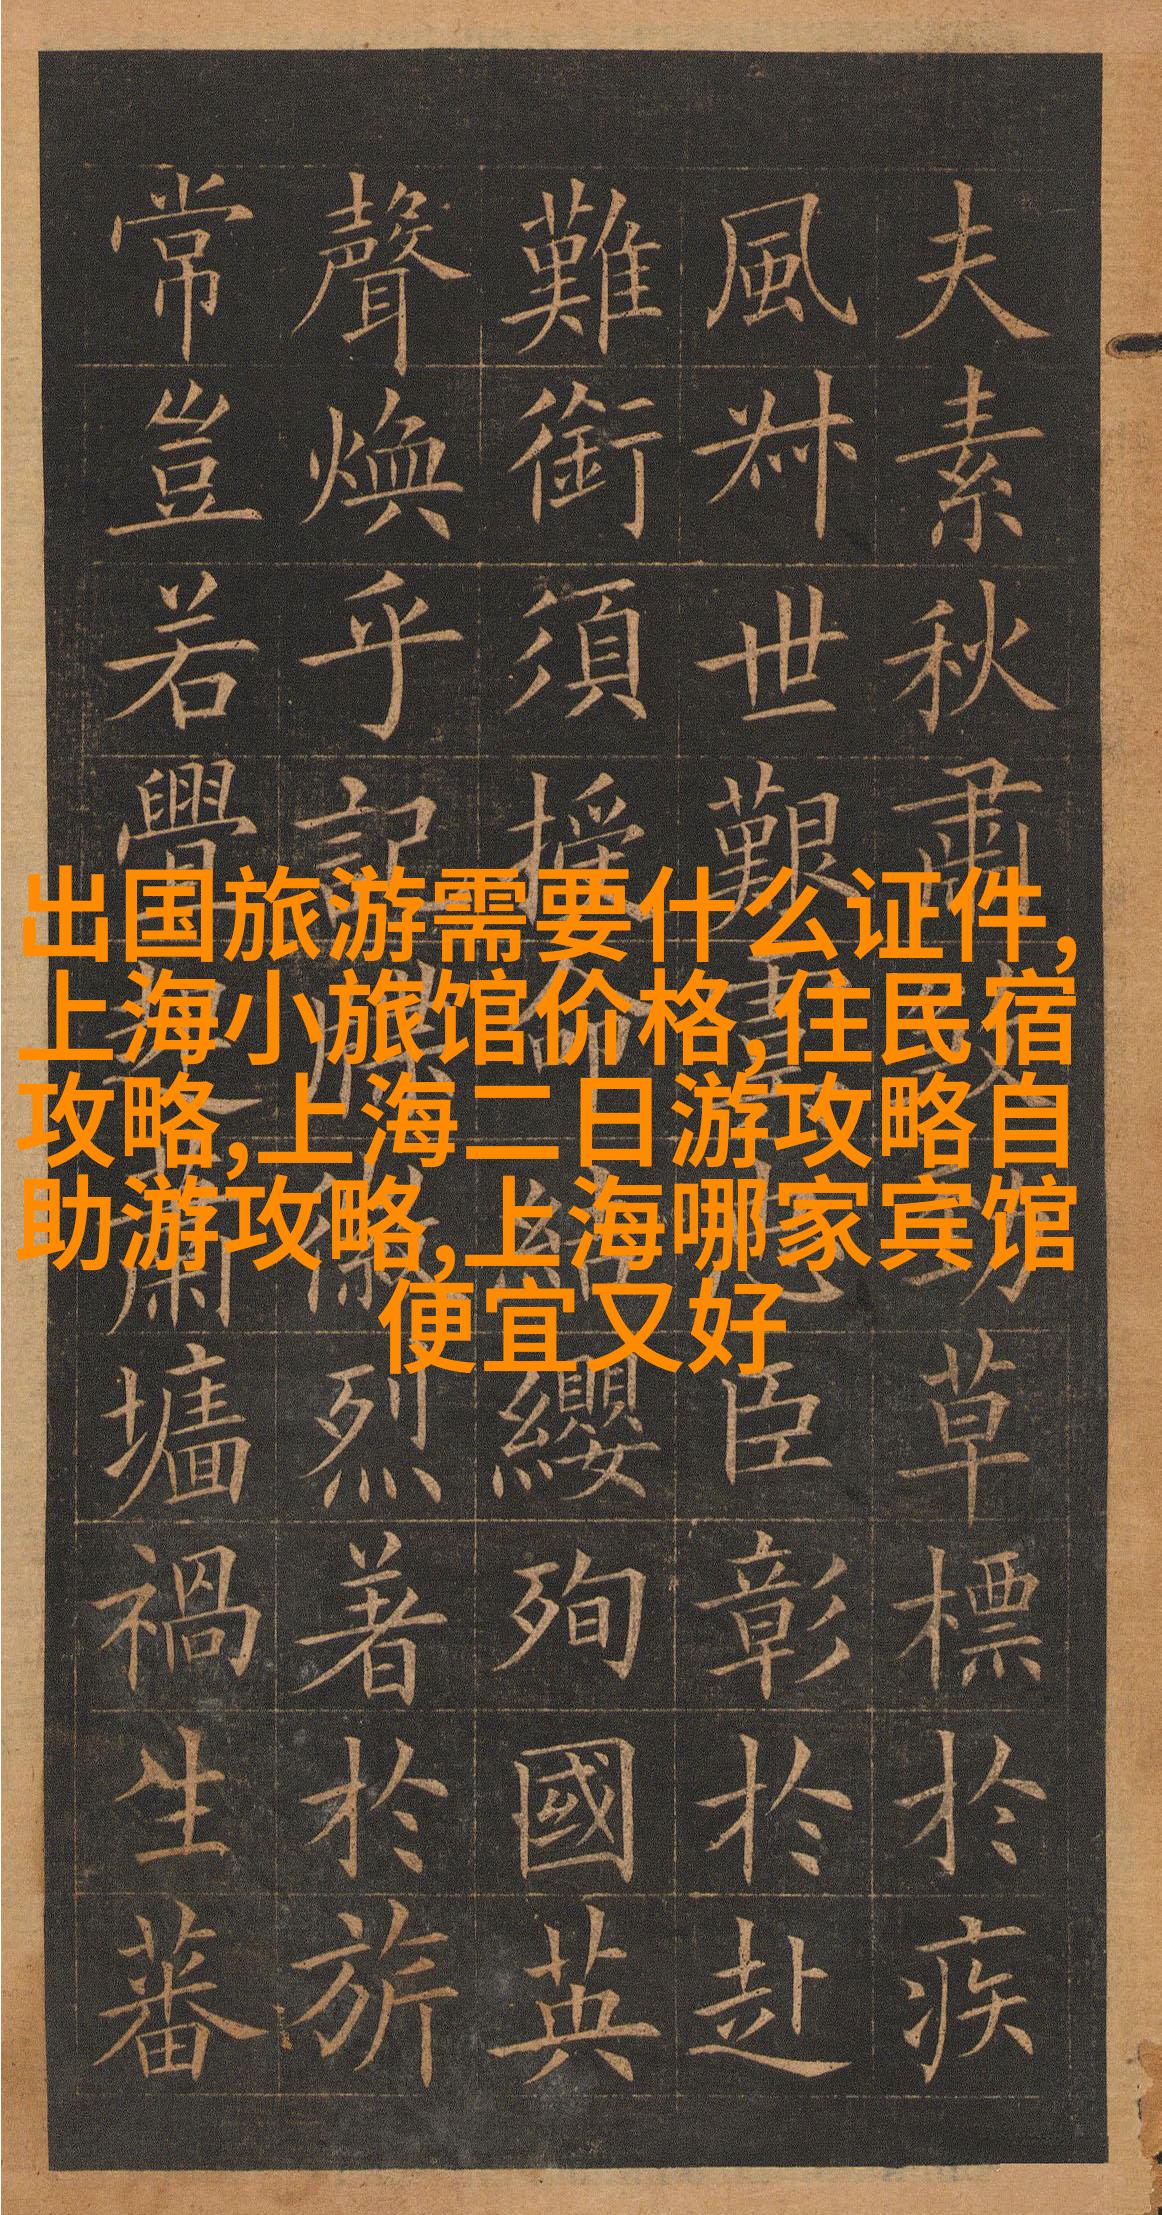 夫素秋肅煞勁草標於疾
風叔世艱虞忠臣彰於赴
難銜須授命結纓殉國英
聲煥乎記牒徽烈著於旂
常豈若釁起蕭墻禍生蕃
出国旅游需要什么证件,
上海小旅馆价格,住民宿
攻略,上海二日游攻略自
助游攻略,上海哪家宾馆
便宜又好